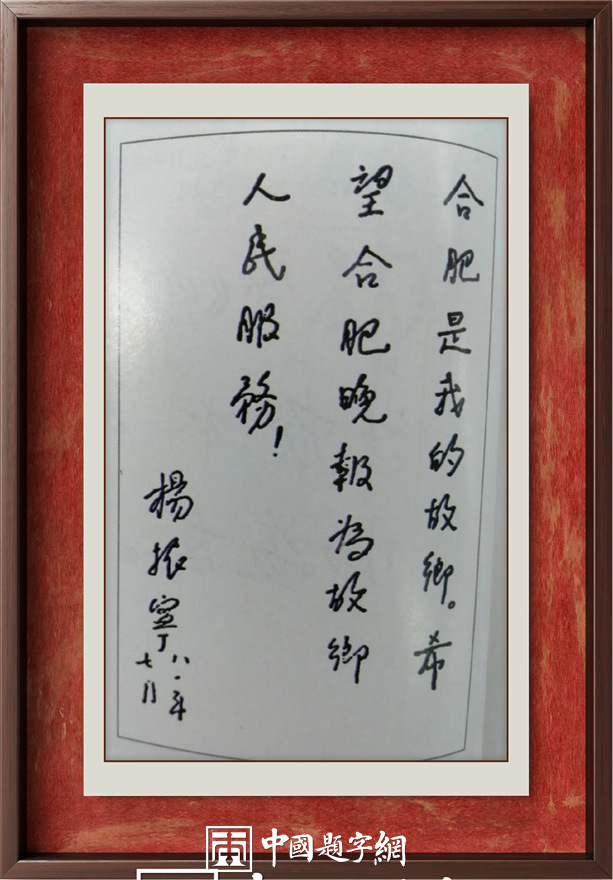 合肥是我的故鄉。希
望合肥晚報為故鄉
人民服務！
楊振寧
八一年
七月
中國題字網